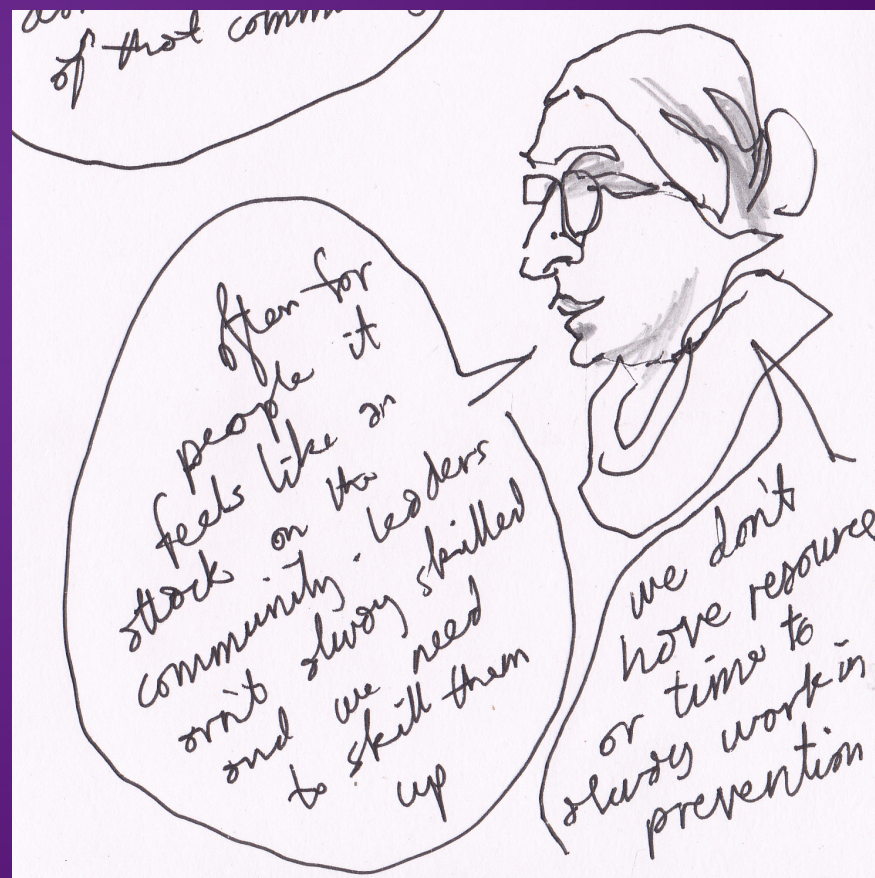 of that comm
often for
people it
feels like an
attack on the
community. leaders
arn't alway skilled
and we need
to skill them
up
we don't
have resource
or time to
always work in
prevention